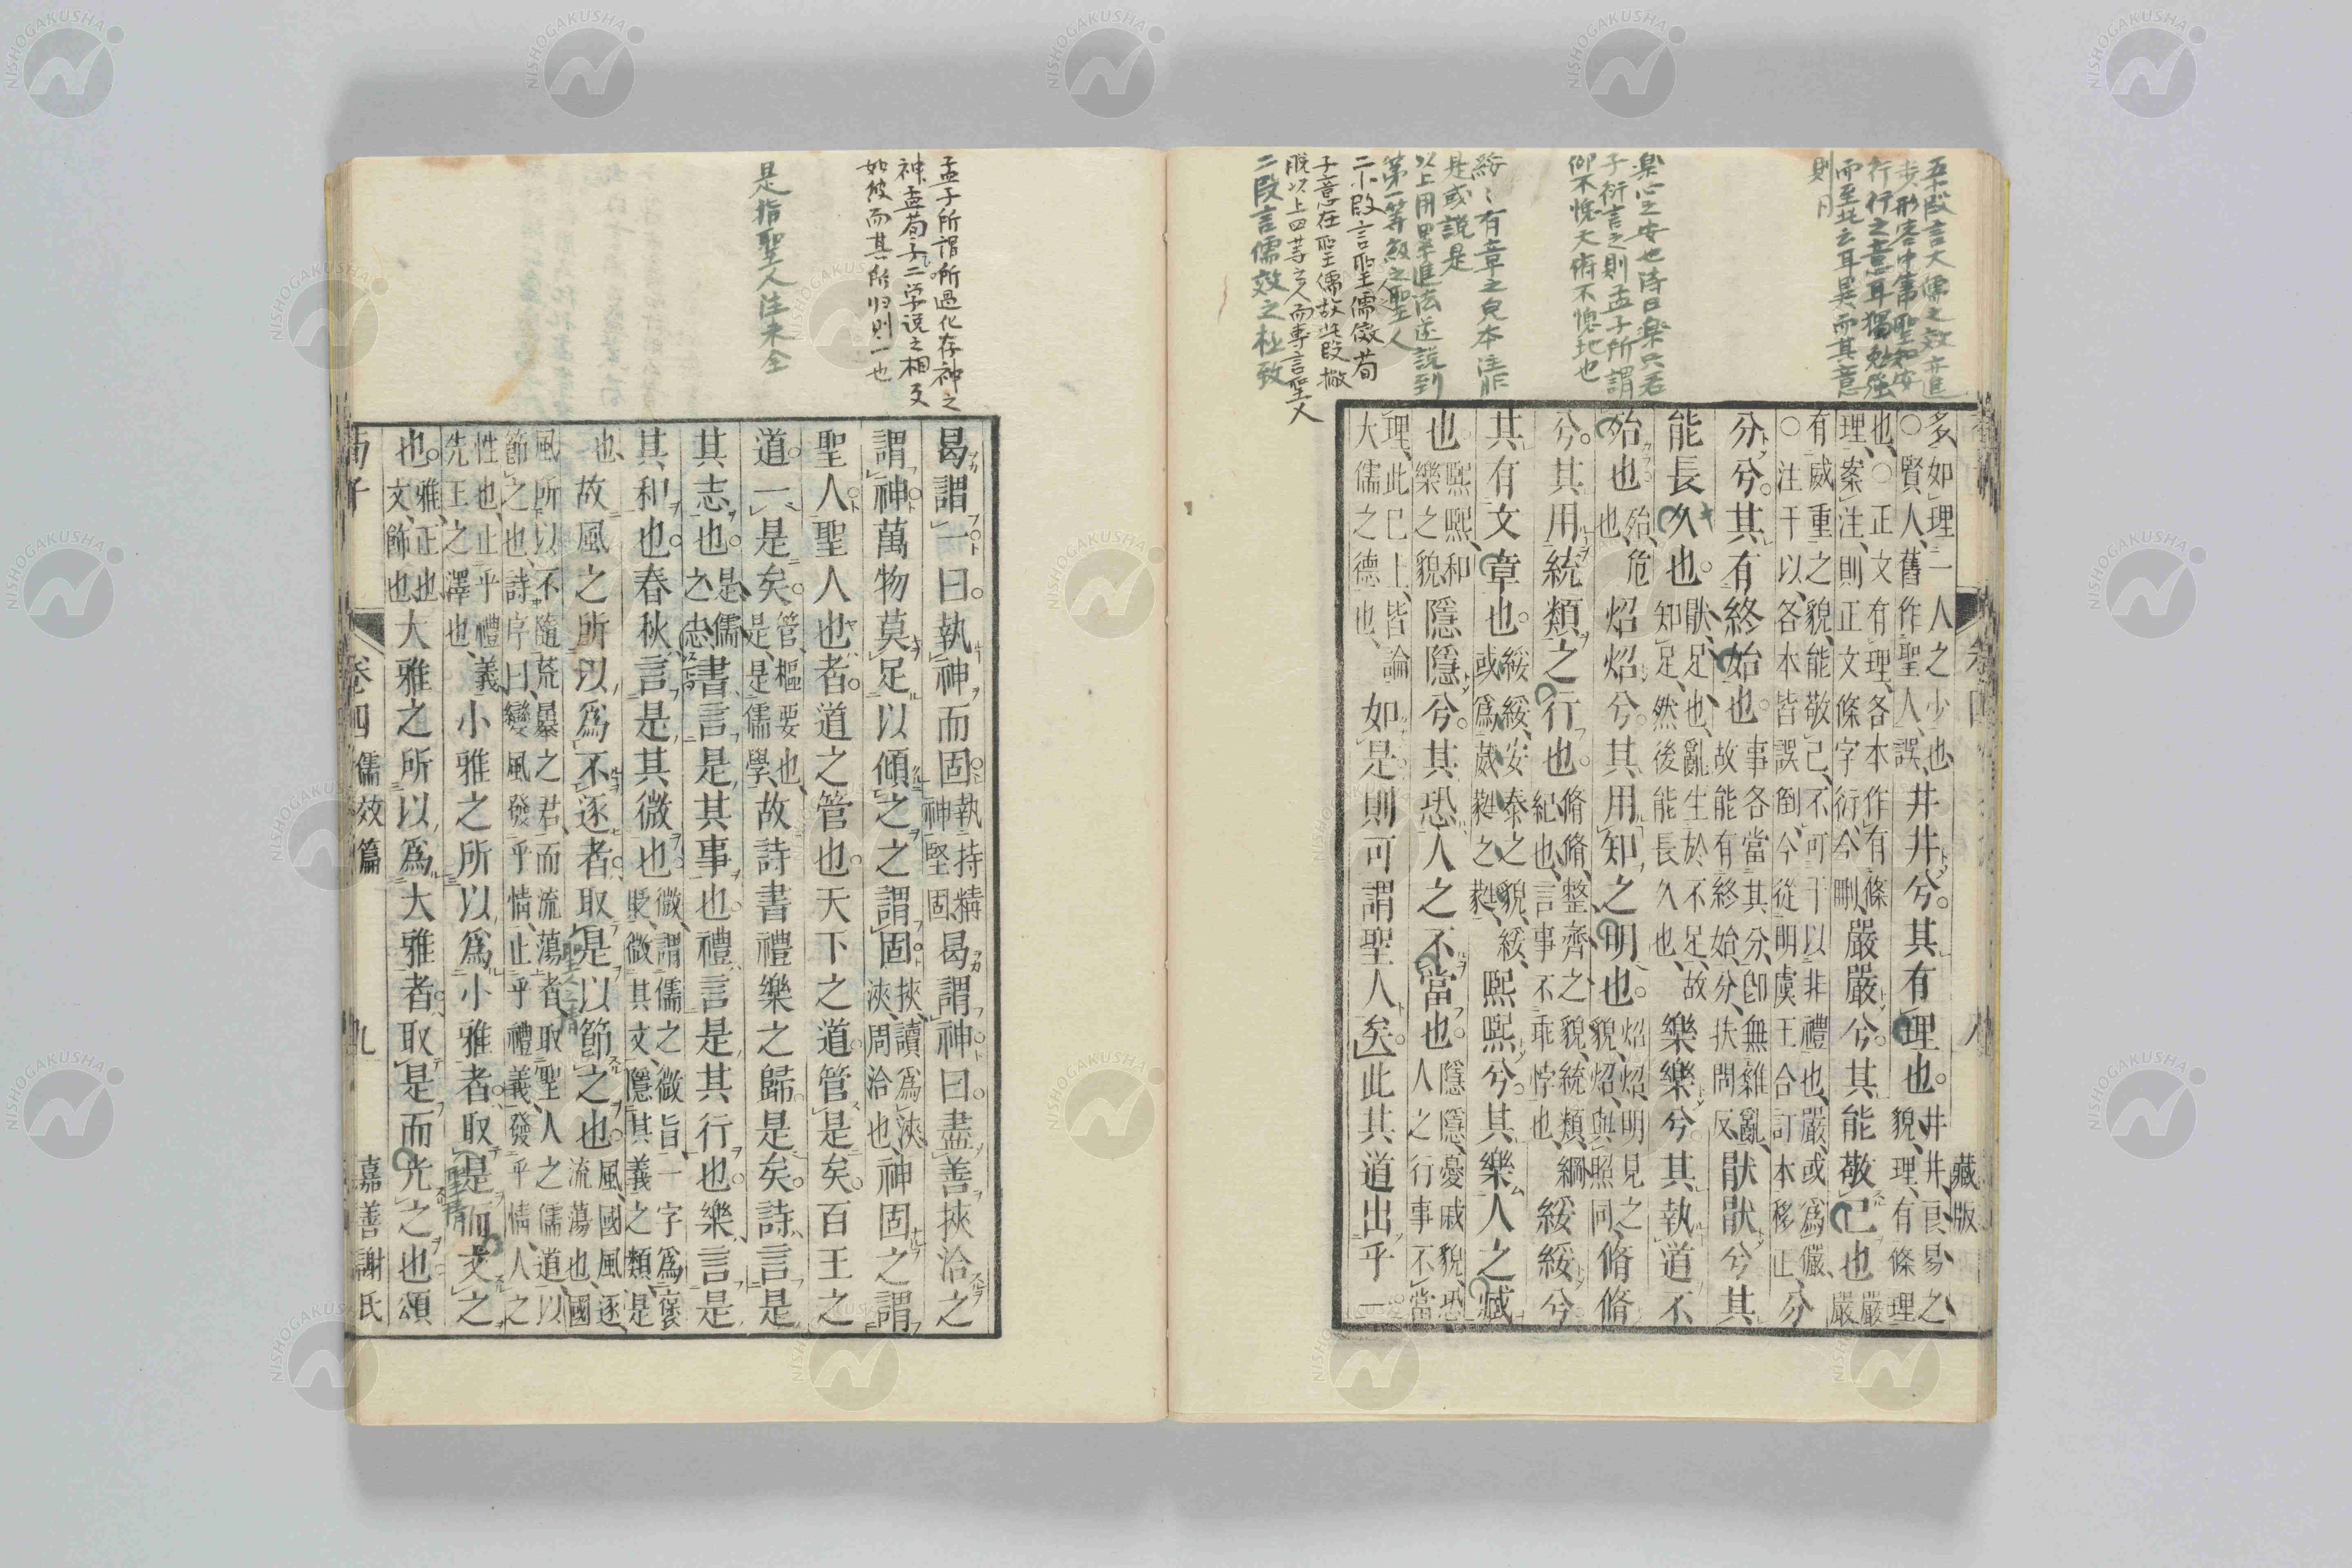 五段言大儒之效亦進
步形容中事聖知安
行行之意耳獨勉強
而至此云耳異而其意
則同
樂心之安也詩曰樂只君
子衍言之則孟子所謂
仰不愧天俯不愧地也
綏〻有章之皃本注非
是或説是
以上用累進法遂説到
第一等級之聖人
二小段言聖儒徵荀
子意在聖儒故此段撇
脱以上四等之人而專言聖人
二段言儒效之極致
藏版
多、如理二一人之少也
○賢人、舊作聖人、誤、井井兮。其有理也。井井、良易之
也、○正文有理、各本作有條貌、理、有條理
理、案注、則正文條字衍、今刪、嚴嚴兮。其能敬己也嚴嚴
有威重之貌、能敬己、不可干以非禮也、嚴或爲儼、
○注干以、各本皆誤倒、今從明虞王合訂本移正、分
分兮。其有終始也。事各當其分、卽無雜亂、故能有終始、分、扶問反、猒猒兮其
能長久也。猒、足也、亂生於不足、故知足、然後能長久也、樂樂兮。其執道不
殆也殆、危也、炤炤兮。其用知之明也。炤炤、明見之貌、炤與照同、脩脩
兮。其用統類之行也。脩脩、整齊之貌、統類、綱紀也、言事不乖悖也、綏綏兮。
其有文章也。綏綏、安泰之貌、綏、或爲葳蕤之蕤、熙熙兮。其樂人之臧
也熙熙、和樂之貌、隱隱兮。其恐人之不當也。隱隱、憂戚貌、恐人之行事不當
理、此已上、皆論大儒之德也、如是則可謂聖人矣。此其道出乎一
孟子所謂所過化存神之
神、孟荀子二学説之相反
如彼而其所归則一也
是指聖人注未全
曷謂一曰。執神而固執持精神堅固、曷謂神曰。盡善挾洽之
謂神萬物莫足以傾之之謂固挾讀爲浹、浹、周洽也、神固之謂
聖人聖人也者。道之管也天下之道管是矣百王之
道。一是矣。管、樞要也、是、是儒學、故詩書禮樂之歸是矣。詩言是
其志也。是儒之志、書言是其事也。禮言是其行也。樂言是
其和也。春秋言是其微也微、謂儒之微旨、一字爲褒貶、微其文、隱其義之類是
也、故風之所以爲不逐者取是以節之也。風、國風、逐、流蕩也、國
風所以不隨荒暴之君、而流蕩者、取聖人之儒道以
節之也、詩序曰、變風發乎情、止乎禮義、發乎情、人之
性也、止乎禮義、先王之澤也、小雅之所以爲小雅者。取是而文之
也。雅、正也、文、飾也、大雅之所以爲大雅者。取是而光之也頌
荀子
卷四
儒效篇
九
嘉善謝氏